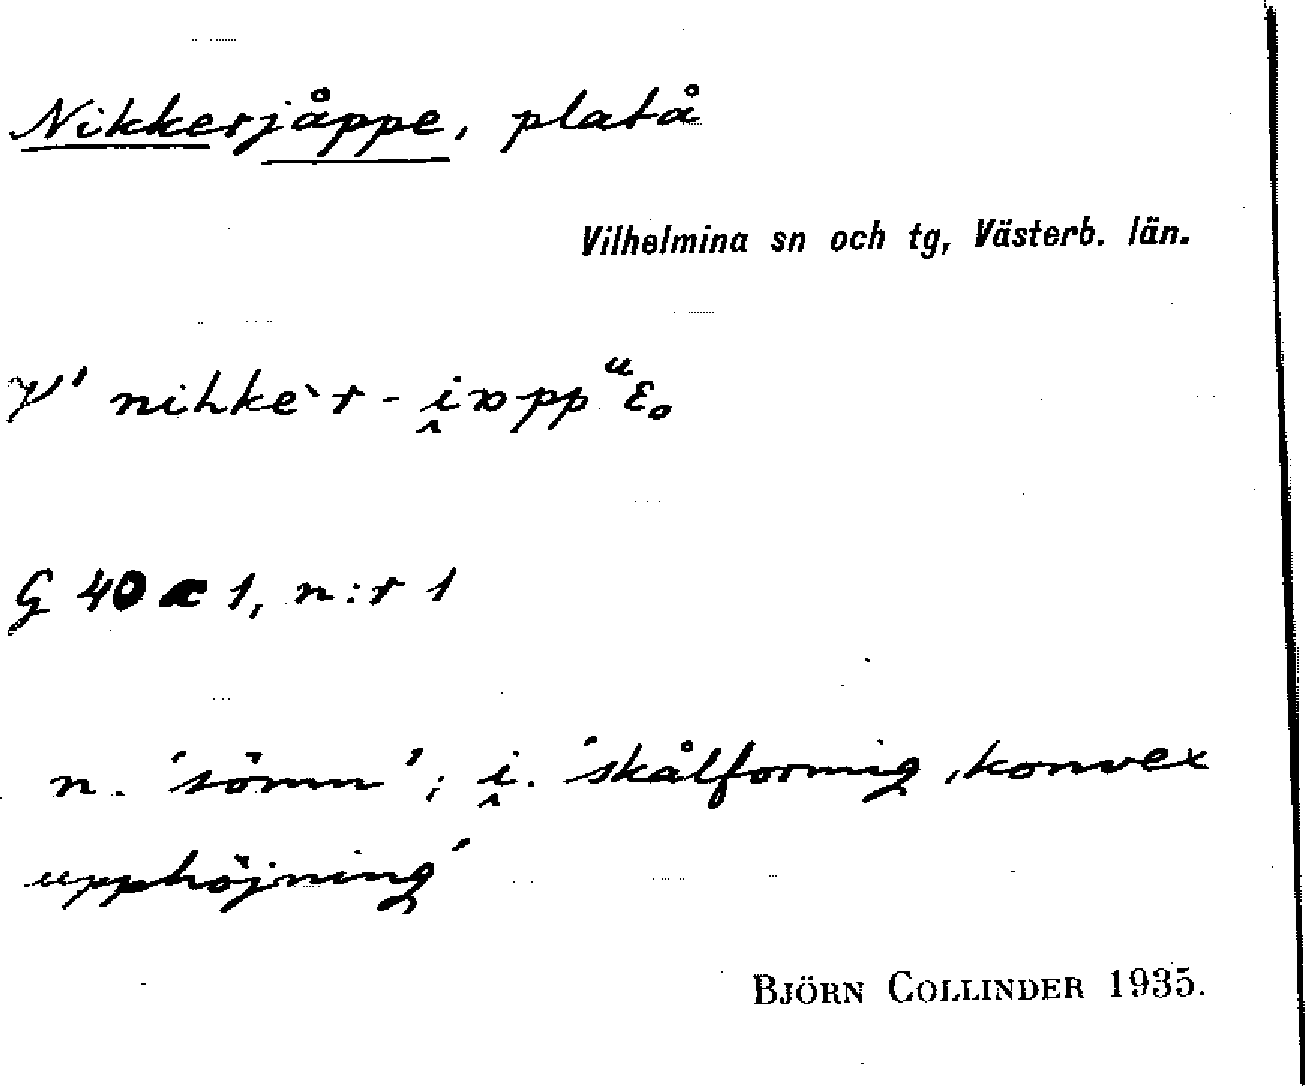 Nikkerjåppe, platå
Vilhelmina sn och tg, Västerb. län.
V' nihke`r - i̯ɔpp ᵘɛ₀
G 40 æ 1, n:r 1
n. 'sömn'; i̯. 'skålformig, konvex
upphöjning'
BJÖRN COLLINDER 1935.